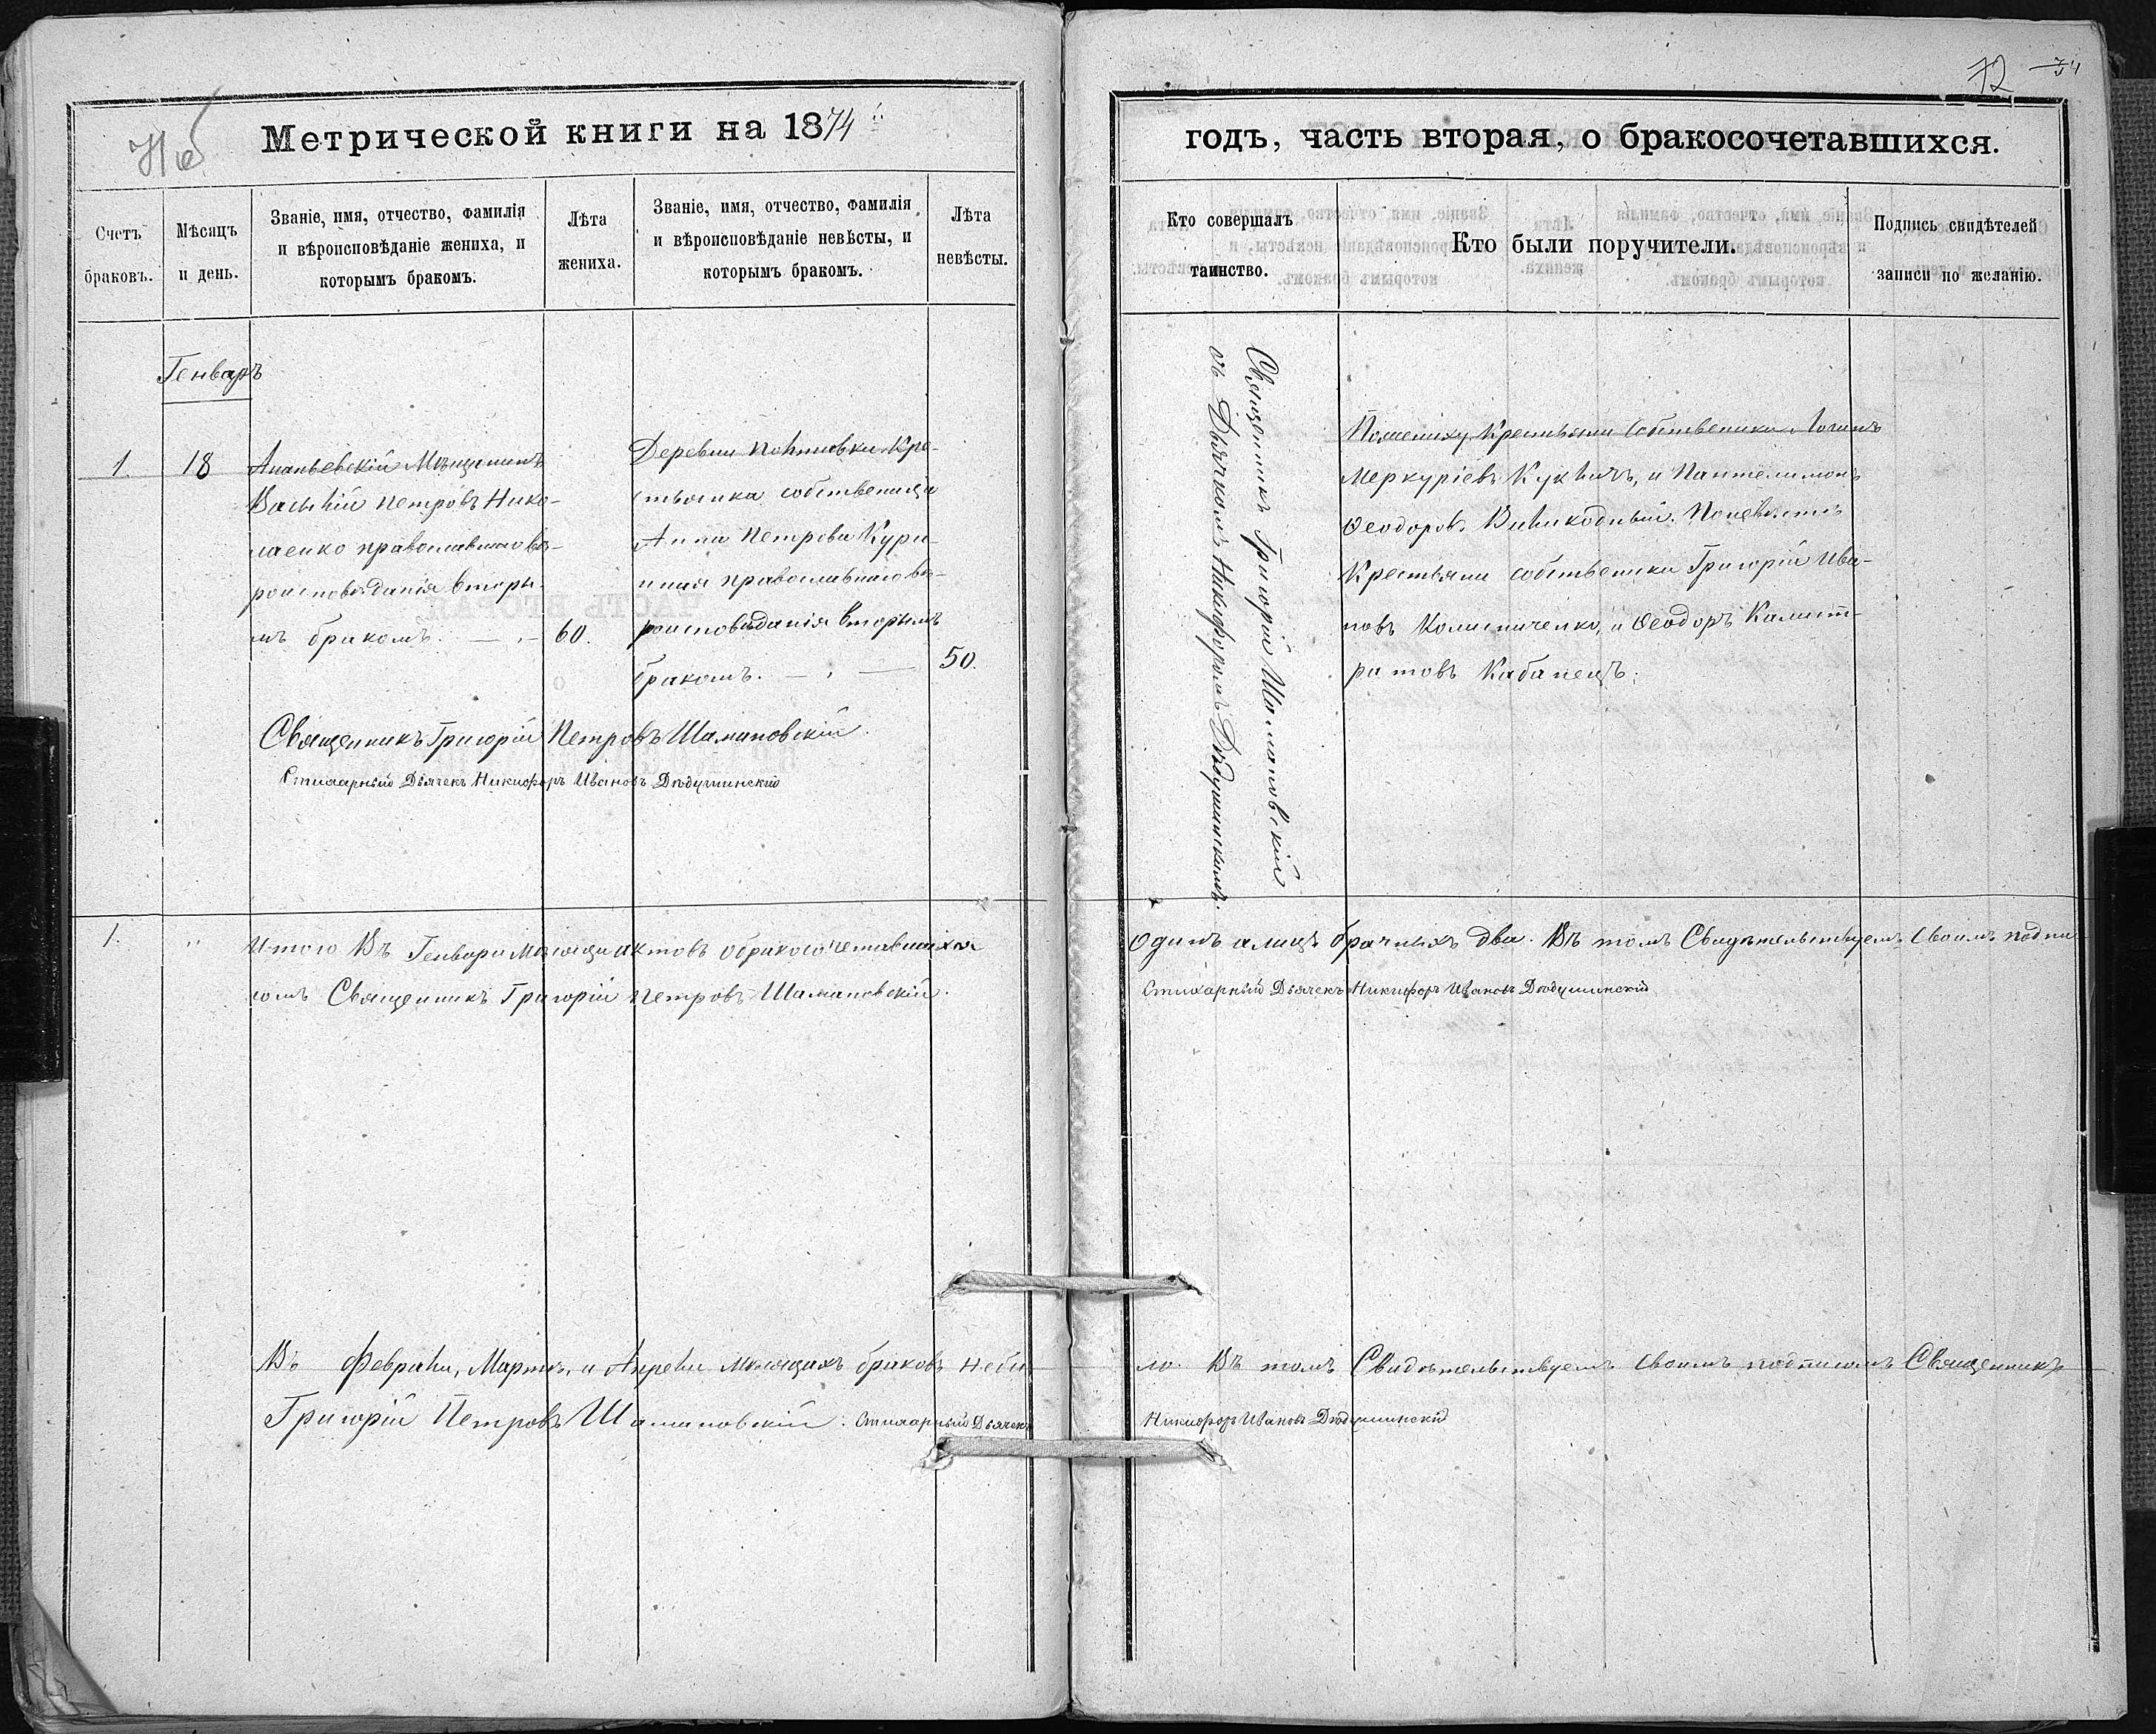 72
Метрической книги на 1874й
годъ, часть вторая, о бракосочетавшихся.
Счетъ
браковъ.
Мѣсяцъ
и день.
Званіе, имя, отчество, фамилія
и вѣроисповѣданіе жениха, и
которымъ бракомъ.
Лѣта
жениха.
Званіе, имя, отчество, фамилія
и вѣроисповѣданіе невѣсты, и
которымъ бракомъ.
Лѣта
невѣсты.
Кто совершалъ
таинство.
Кто были поручители.
Подпись свидѣтелей
записи по желанію.
Генварь
1.
18
Ананьевскій Мѣщанинъ
Василій Петровъ Нико-
лаенко православнаго вѣ-
роисповѣданія вторы-
мъ бракомъ.
60.
Деревни Кре-
стьянка собственица
Анна Петрова Кури-
нная православнаго вѣ-
роисповѣданія вторымъ
бракомъ.
50.
Священникъ Григорій Шамановскій
съ Дьячкомъ Никифоромъ Дѣдушинскимъ.
По жениху Крестьяни Собственики Логинъ
Меркуріевъ и Пантелимонъ
Ѳеодоровъ По невѣсте
Крестьяни собственики Григорій Ива-
новъ Колисниченко, и Ѳеодоръ Калист-
ратовъ Кабанецъ.
Священникъ Григорій Петровъ Шамановскій.
Стихарный Дьячекъ Никифоръ Ивановъ Дѣдушинскій
1. "
Итого Въ Генвари Мѣсяци актовъ о бракосочетавшихся
одинъ а лицъ брачныхъ два. Въ томъ Свидѣтельствуемъ Своимъ подпи-
сомъ Священникъ Григорій Петровъ Шамановскій.
Стихарный Дьячекъ Никифоръ Ивановъ Дѣдушинскій
Въ Феврали, Мартѣ, и Апрели Мѣсяцахъ браковъ небы-
ло. Въ томъ Свидѣтельствуемъ своимъ подписомъ Священникъ
Григорій Петровъ Шамановскій. Стихарный Дьячекъ
Никифоръ Ивановъ Дѣдушинскій